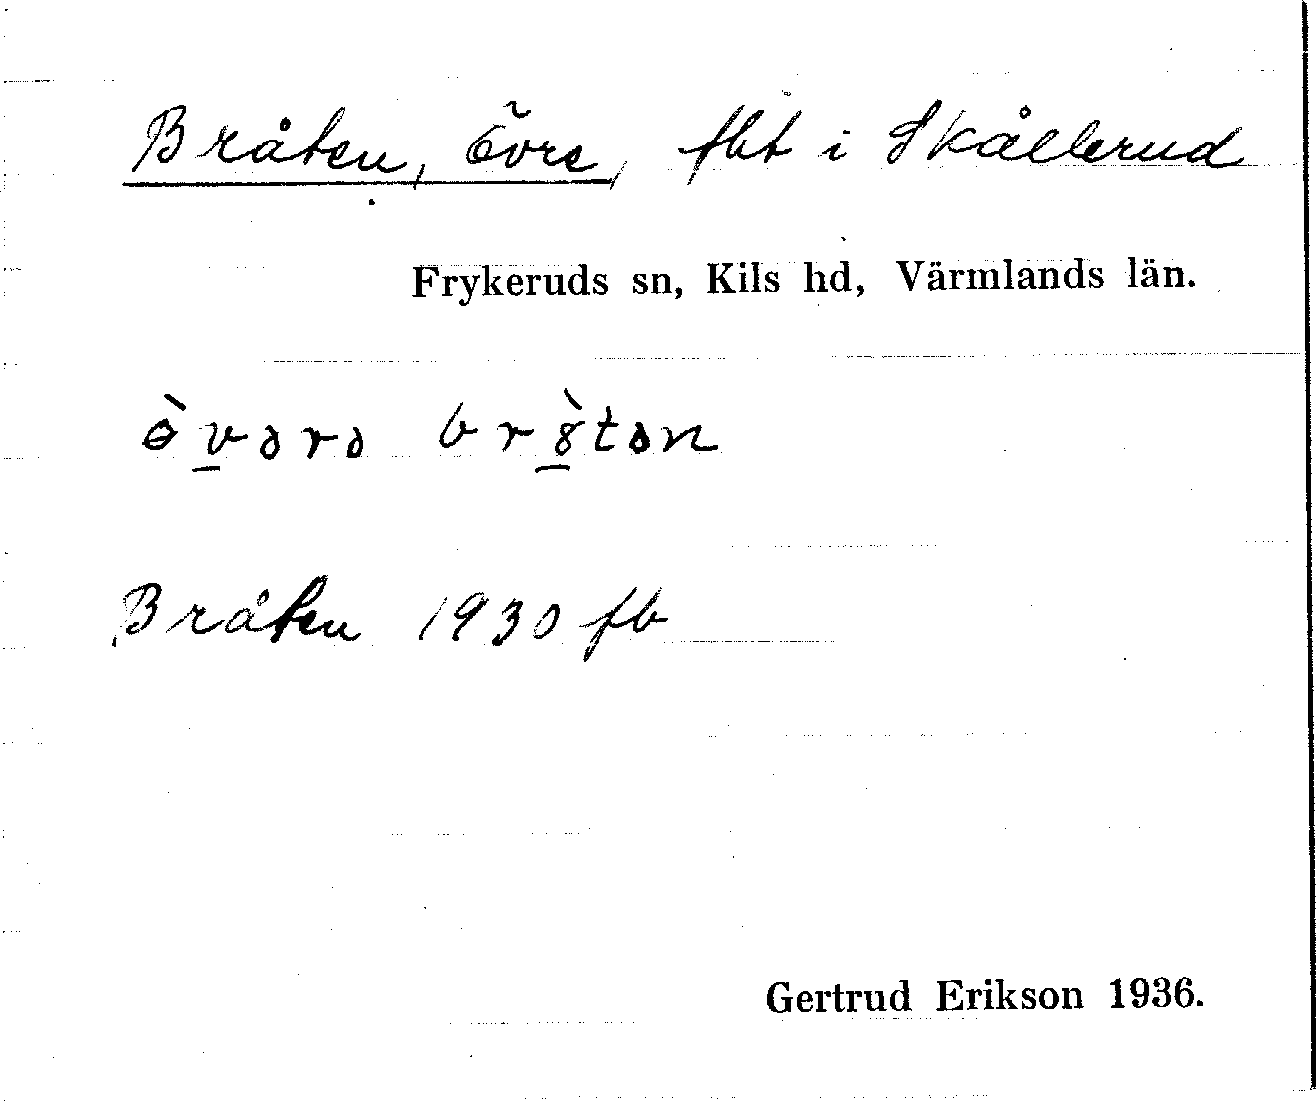 Bråten, Övre, lht i Skållerud
Frykeruds sn, Kils hd, Värmlands län.
ɵ̀v̲ərə brò̲tən
Bråten 1930 fb
Gertrud Erikson 1936.